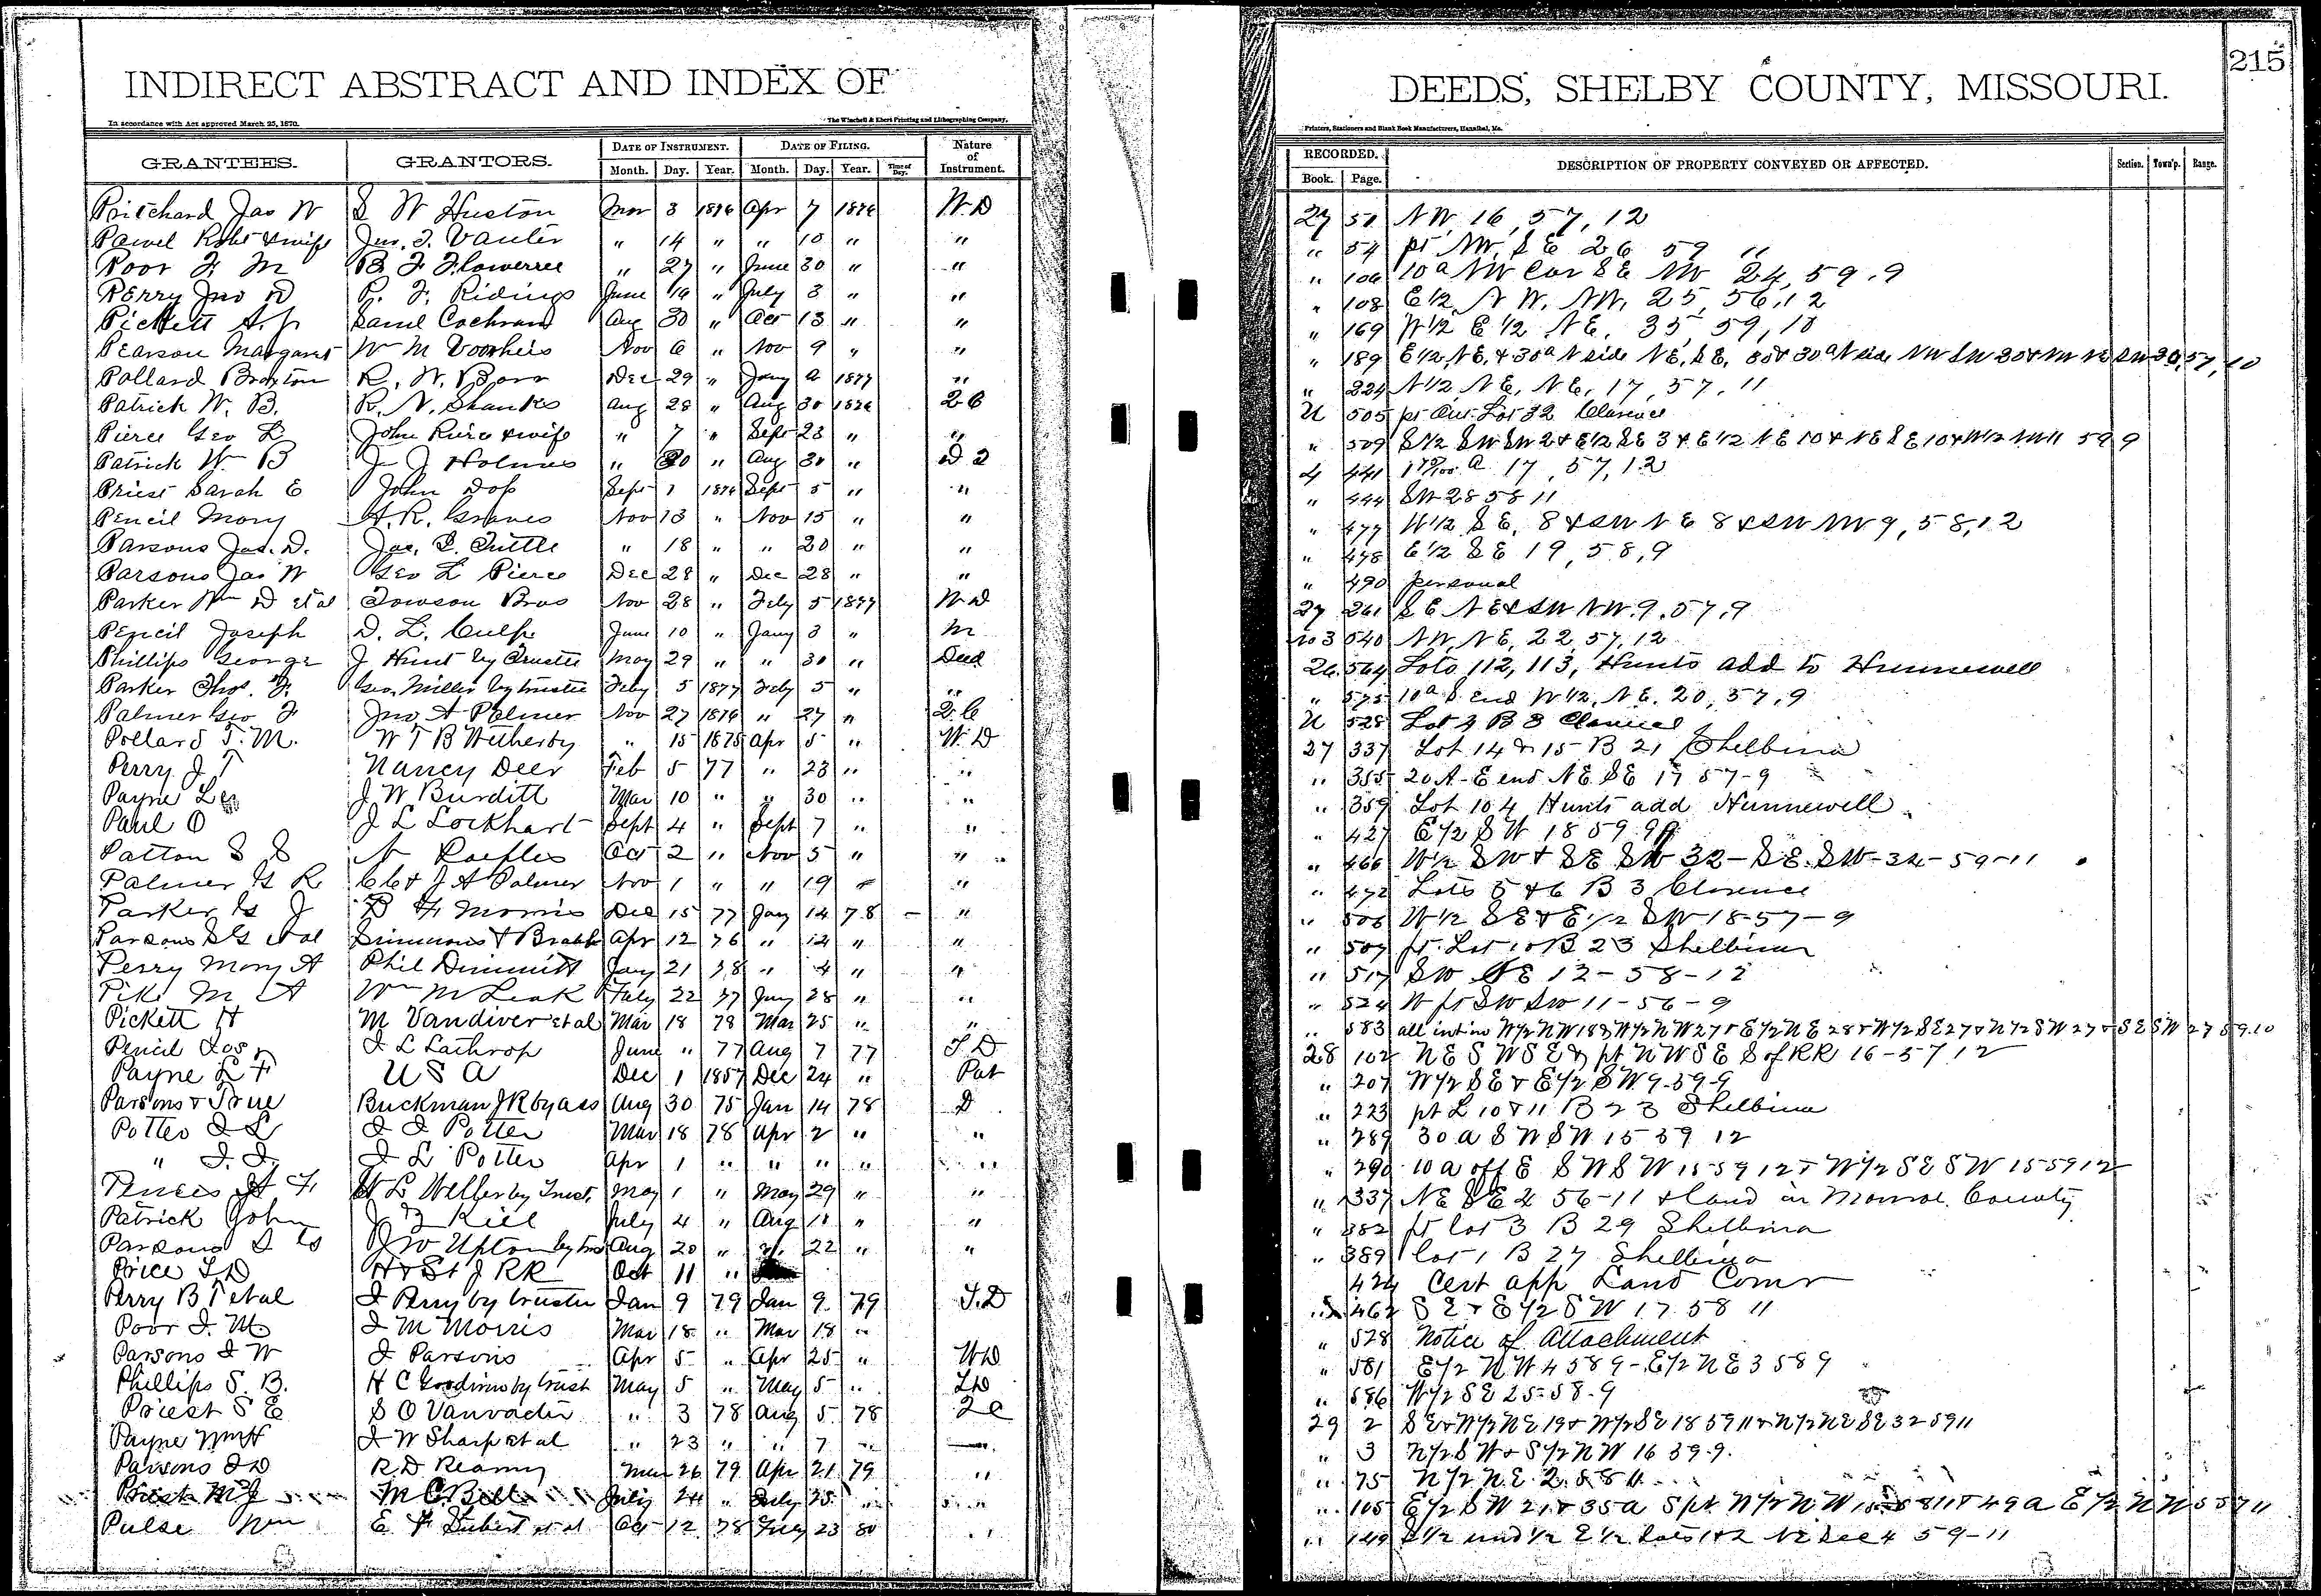 INDIRECT ABSTRACT AND INDEX OF DEEDS, SHELBY COUNTY, MISSOURI. 215
In accordance with Act approved March 25, 1870. The Winchell & Ebert Printing and Lithographing Company, Printers, Stationers and Blank Book Manufacturers, Hannibal, Mo.
GRANTEES. GRANTORS. DATE OF INSTRUMENT. DATE OF FILING. Nature of Instrument. RECORDED. DESCRIPTION OF PROPERTY CONVEYED OR AFFECTED. Section. Town'p. Range.
Month. Day. Year. Month. Day. Year. Time of Day. Book. Page.
Pritchard Jas W S W Huston Mar 3 1876 Apr 7 1876 W.D 27 51 NW, 16, 57, 12
Pawel Robt & wife Jno. T. Vanter " 14 " " 10 " " " 54 pt NW, SE 26 59 11
Poor F M B. F Flowerree " 27 " June 30 " " " 106 10 a NW Cor SE NW 24, 59, 9
Perry Jno D R. F. Ridings June 16 " July 3 " " " 108 E 1/2 NW, NW, 25, 56, 12
Pickett A. P Saml Cochran Aug 30 " Oct 13 " " " 169 W 1/2 E 1/2 NE, 35, 59, 10
Pearson Margaret W M Voorheis Nov 6 " Nov 9 " " " 189 E 1/2, NE, & 30 a N side NE, SE,
Pollard Braxton R. W. Barr Dec 29 " Jany 2 1877 " " 224 N 1/2 NE, NE, 17, 57, 11
Patrick W. B. R. N. Shanks Aug 28 " Aug 30 1876 2 C U 505 pt Out Lot 32 Clarence
Pierce Geo L John Pierce & wife " 7 " Sept 23 " " " 509 S 1/2 SW SW 2 & E 1/2 SE 3 & E 1/2 NE 10 & NE SE 10 & W 1/2 NW 11 59 9
Patrick W B J J Holmes " 30 " Aug 30 " D 2 4 441 17, 57, 12
Priest Sarah E John Dop Sept 1 1876 Sept 5 " " " 444 SW 28 58 11
Pencil Mary H. R. Graves Nov 13 " Nov 15 " " " 477 W 1/2 SE, 8 & SW NE 8 & SW NW 9, 58, 12
Parsons Jas. D. Jas. S. Tuttle " 18 " " 20 " " " 478 E 1/2 SE 19, 58, 9
Parsons Jas W Geo L Pierce Dec 28 " Dec 28 " " " 490 personal
Parker Wm D et al Towson Bros Nov 28 " Feby 5 1877 W D 27 261 SE NE & SW NW, 9, 57, 9
Pencil Joseph D. L. Culp June 10 " Jany 3 " M no 3 540 NW, NE, 22, 57, 12
Phillips George J Hunt by Trustee May 29 " " 30 " Deed 26 564 Lots 112, 113, Hunts add to Hunnewell
Parker Thos. F. Geo Miller by trustee Feby 5 1877 Feby 5 " " " 575 10 a S. End W 1/2, NE, 20, 57, 9
Palmer Geo F Jno A Palmer Nov 27 1876 " 27 " 2. C U 528 Lot 4 B 3 Clarence
Pollard T. M. W T B Wetherby " 15 1875 Apr 5 " W. D 27 337 Lot 14 & 15 B 21 Shelbina
Perry J T Nancy Deer Feb 5 77 " 23 " " " 355 20 A - E end NE SE 17 57-9
Payne J W Burditt Mar 10 " " 30 " " " 359 Lot 104 Hunts add Hunnewell
Paul O J L Lockhart Sept 4 " Sept 7 " " " 427 E 1/2 SW 18 59 9
Patton S S N Oct 2 " Nov 5 " " " 466 W 1/2 SW & SE SW 32 - SE. SW - 32 - 59-11
Palmer G R C C & J A Palmer Nov 1 " " 19 " " " 472 Lots 5 & 6 B 3 Clarence
Parker G J B F Morris Dec 15 77 Jany 14 78 - " " 506 W 1/2 SE & E 1/2 SW 18-57-9
Parsons et al Simmons & Apr 12 76 " 14 " " " 507 pt. Lot 10 B 23 Shelbina
Perry Mary A Phil Dimmitt Jany 21 78 " 4 " " " 517 SW NE 12-58-12
Pike M A Wm M Leak July 22 77 Jany 28 " " " 524 W pt SW SW 11-56-9
Pickett H M Vandiver et al Mar 18 78 Mar 25 " " " 583 all int in W 1/2 NW 18 W 1/2 NW 27 & E 1/2 NE 28 & W 1/2 SE 27 & N 1/2 SW 27 & SE SW 27 59.10
Pencil Jos. J L Lathrop June " 77 Aug 7 77 T D 28 102 NE SW SE & pt NW SE S of RR 16-57 12
Payne L F U S A Dec 1 1857 Dec 24 " Pat " 207 W 1/2 SE & E 1/2 SW 9-59-9
Parsons & True Buckman J R by ass Aug 30 75 Jan 14 78 D " 223 pt L 10 & 11 B 23 Shelbina
Potter I L J I Potter Mar 18 78 Apr 2 " " " 289 30 a SW SW 15 59 12
" J. I. I L Potter Apr 1 " " " " " " 290 10 a off E SW SW 15 59 12 & W 1/2 SE SW 15 59 12
H L Weller by Trust. May 1 " May 29 " " " 337 NE SE 2 56-11 & land in Monroe County
Patrick John July 2 " Aug 10 " " " 382 pt lot 3 B 29 Shelbina
Parsons J W Upton by Aug 20 " " 22 " " " 389 lot 1 B 27 Shelbina
Price T D H & St J RR Oct 11 " 424 Cert app Land Comr
Perry B T et al J Perry by trustee Jan 9 79 Jan 9 79 T. D " 462 SE & E 1/2 SW 17 58 11
Poor J. M J M Morris Mar 18 " Mar 18 " " 528 Notice of Attachment
Parsons J W J Parsons Apr 5 " Apr 25 " W D " 581 E 1/2 NW 4 58 9 - E 1/2 NE 3 58 9
Phillips S. B. H C Goodwin by trust May 5 " May 5 " T D " 586 W 1/2 SE 25-58-9
Priest S E S O Vanvacter " 3 78 Aug 5 78 2 C 29 2 SE & W 1/2 NE 19 & W 1/2 SE 18 59 11 & N 1/2 NE SE 32 59 11
Payne Wm H J W Sharp et al " 23 " " 7 " " 3 N 1/2 SW & S 1/2 NW 16 59-9.
Parsons J D R D Reamy Mar 26 79 Apr 21 79 " " 75 N 1/2 NE 2 58 11
Priest M J M C Bell July 24 " July 25 " " " 105 E 1/2 SW 21 & 35 a S pt W 1/2 NW
Pulse Wm E F et al Oct 12 78 Feby 23 80 " " 149 S 1/2 und 1/2 E 1/2 Lots 1 & 2 NE Sec 4 59-11